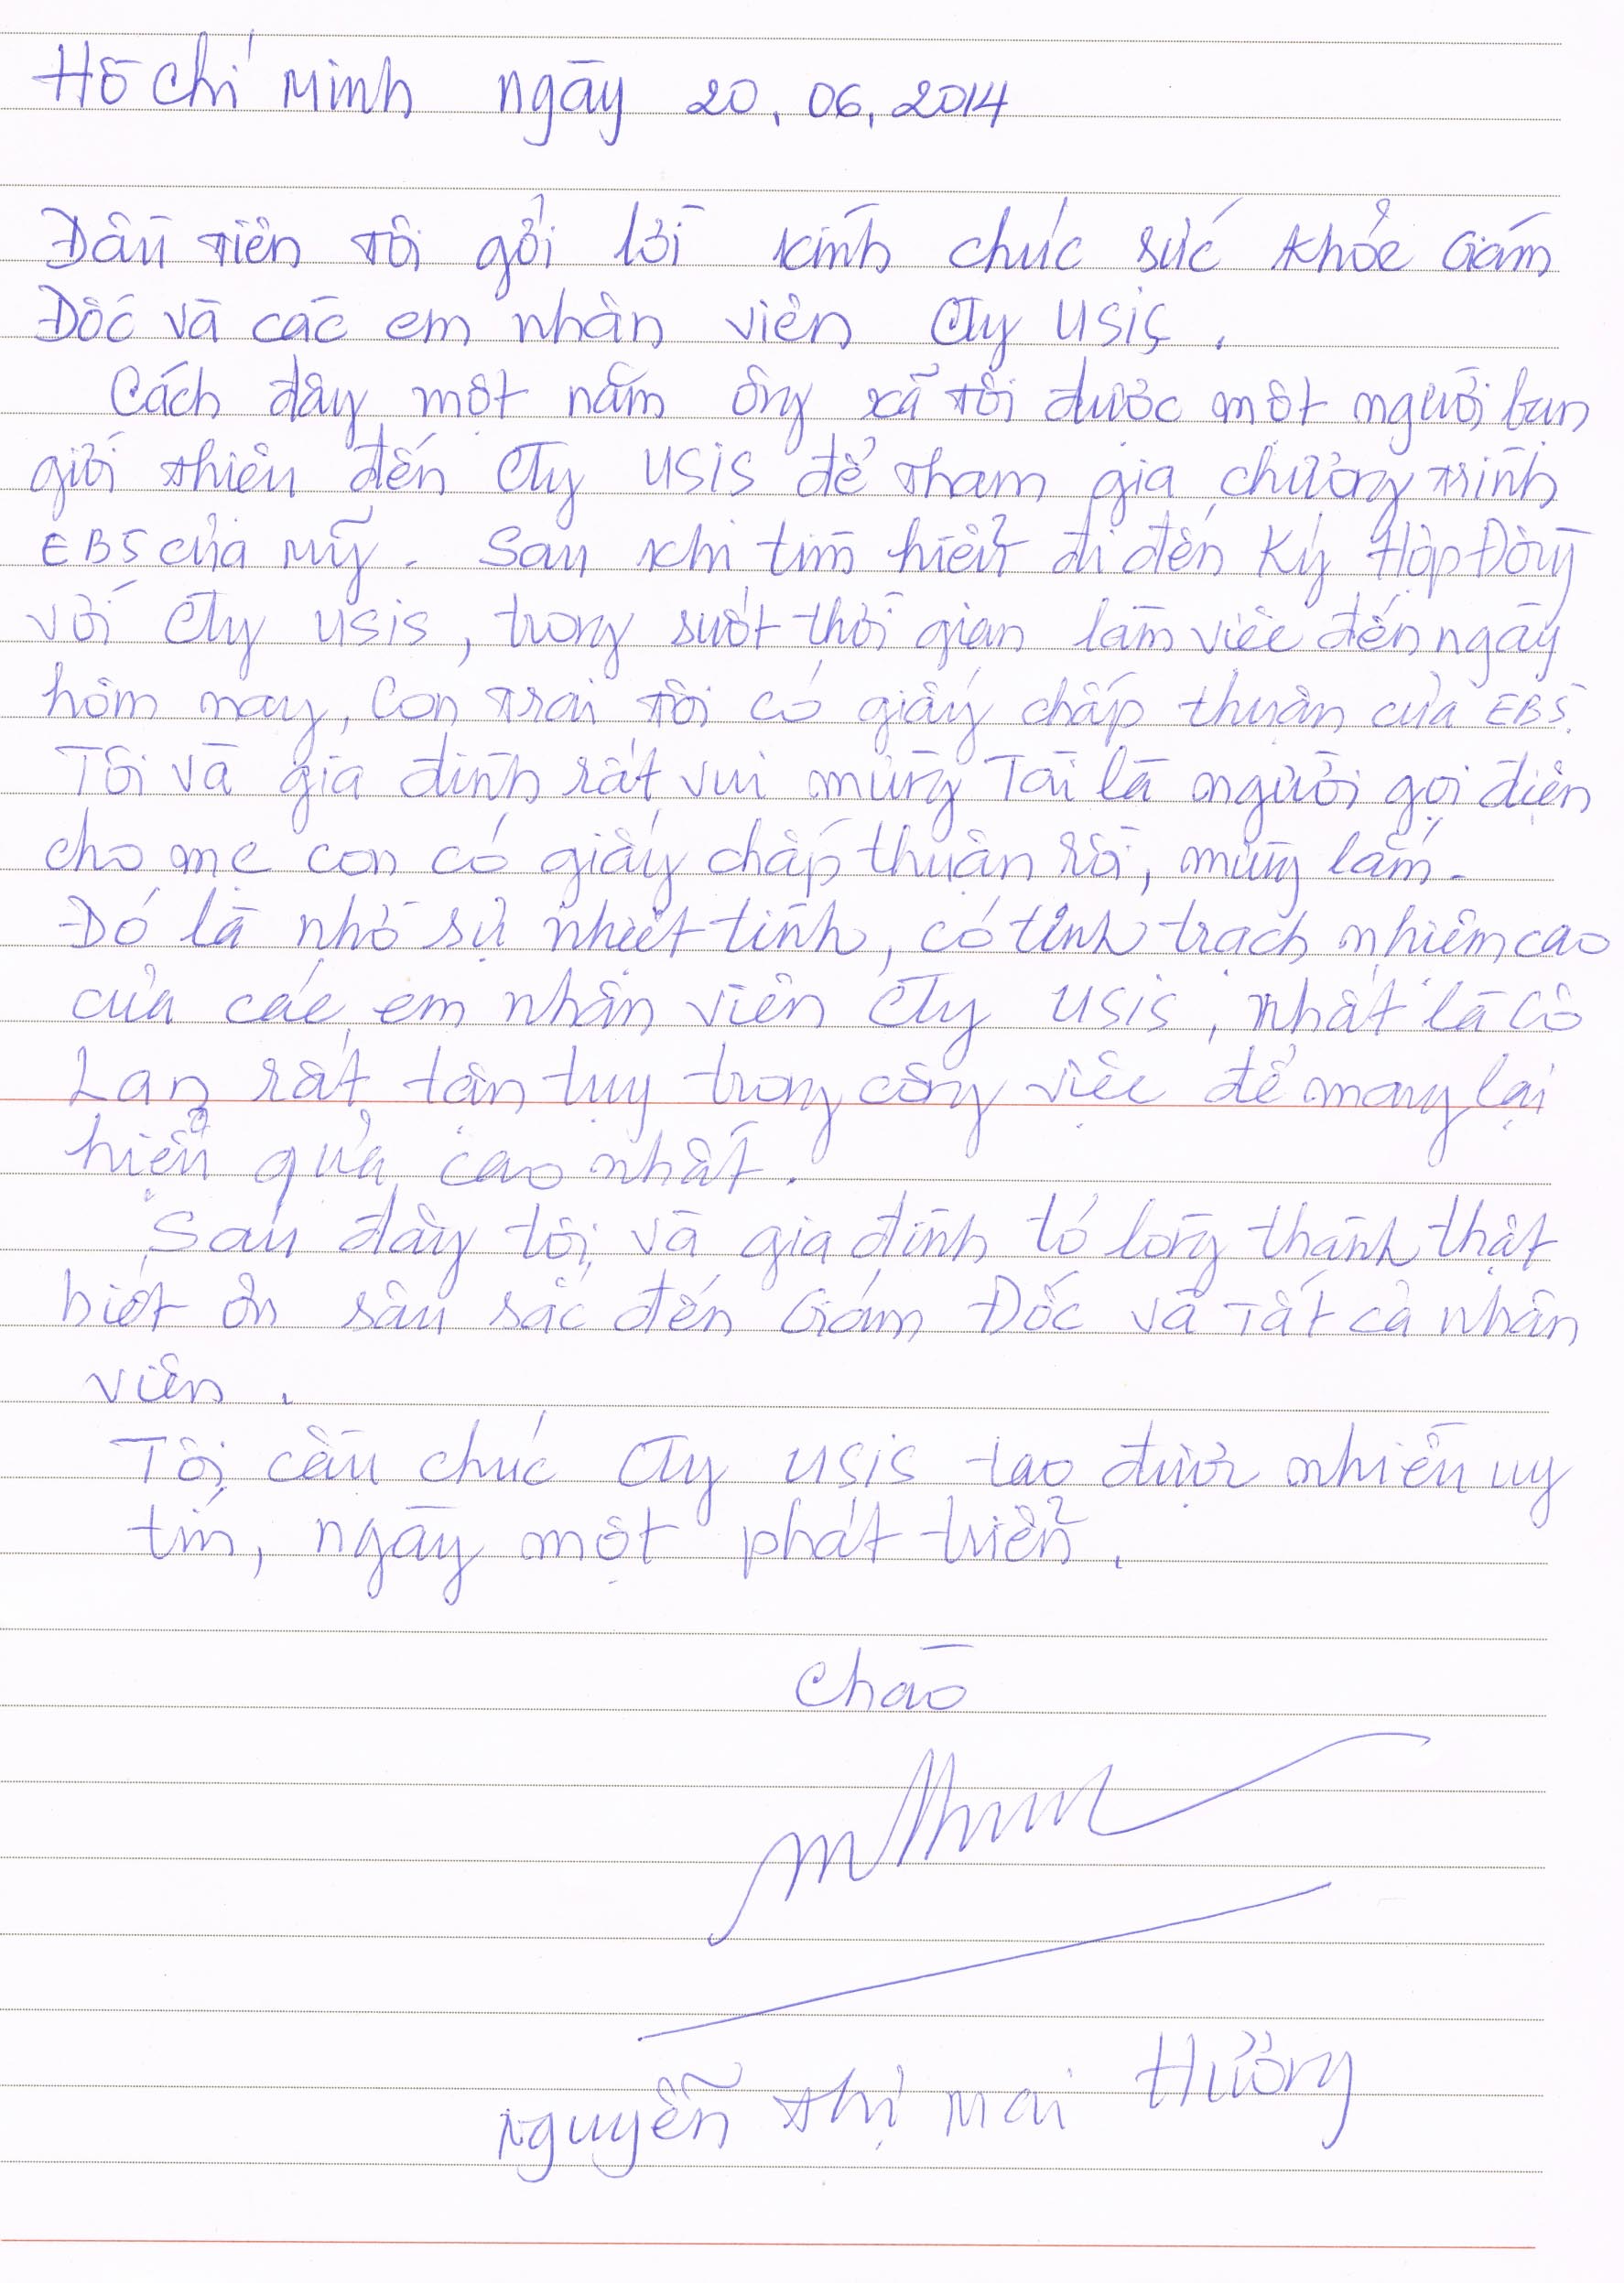 Hồ Chí Minh ngày 20.06.2014
Đầu tiên tôi gởi lời kính chúc sức khỏe Giám
Đốc và các em nhân viên Cty USIS.
Cách đây một năm ông xã tôi được một người bạn
giới thiệu đến Cty USIS để tham gia chương trình
EB5 của Mỹ. Sau khi tìm hiểu đi đến Ký Hợp Đồng
với Cty USIS, trong suốt thời gian làm việc đến ngày
hôm nay, Con trai tôi có giấy chấp thuận của EB5.
Tôi và gia đình rất vui mừng Tài là người gọi điện
cho mẹ con có giấy chấp thuận rồi, mừng lắm.
Đó là nhờ sự nhiệt tình, có tính trách nhiệm cao
của các em nhân viên Cty USIS, nhất là Cô
Lan rất tận tụy trong công việc để mang lại
hiệu quả cao nhất.
Sau đây tôi và gia đình tỏ lòng thành thật
biết ơn sâu sắc đến Giám Đốc và Tất cả nhân
viên.
Tôi cầu chúc Cty USIS tạo được nhiều uy
tín, ngày một phát triển.
Chào
Nguyễn Thị Mai Hương